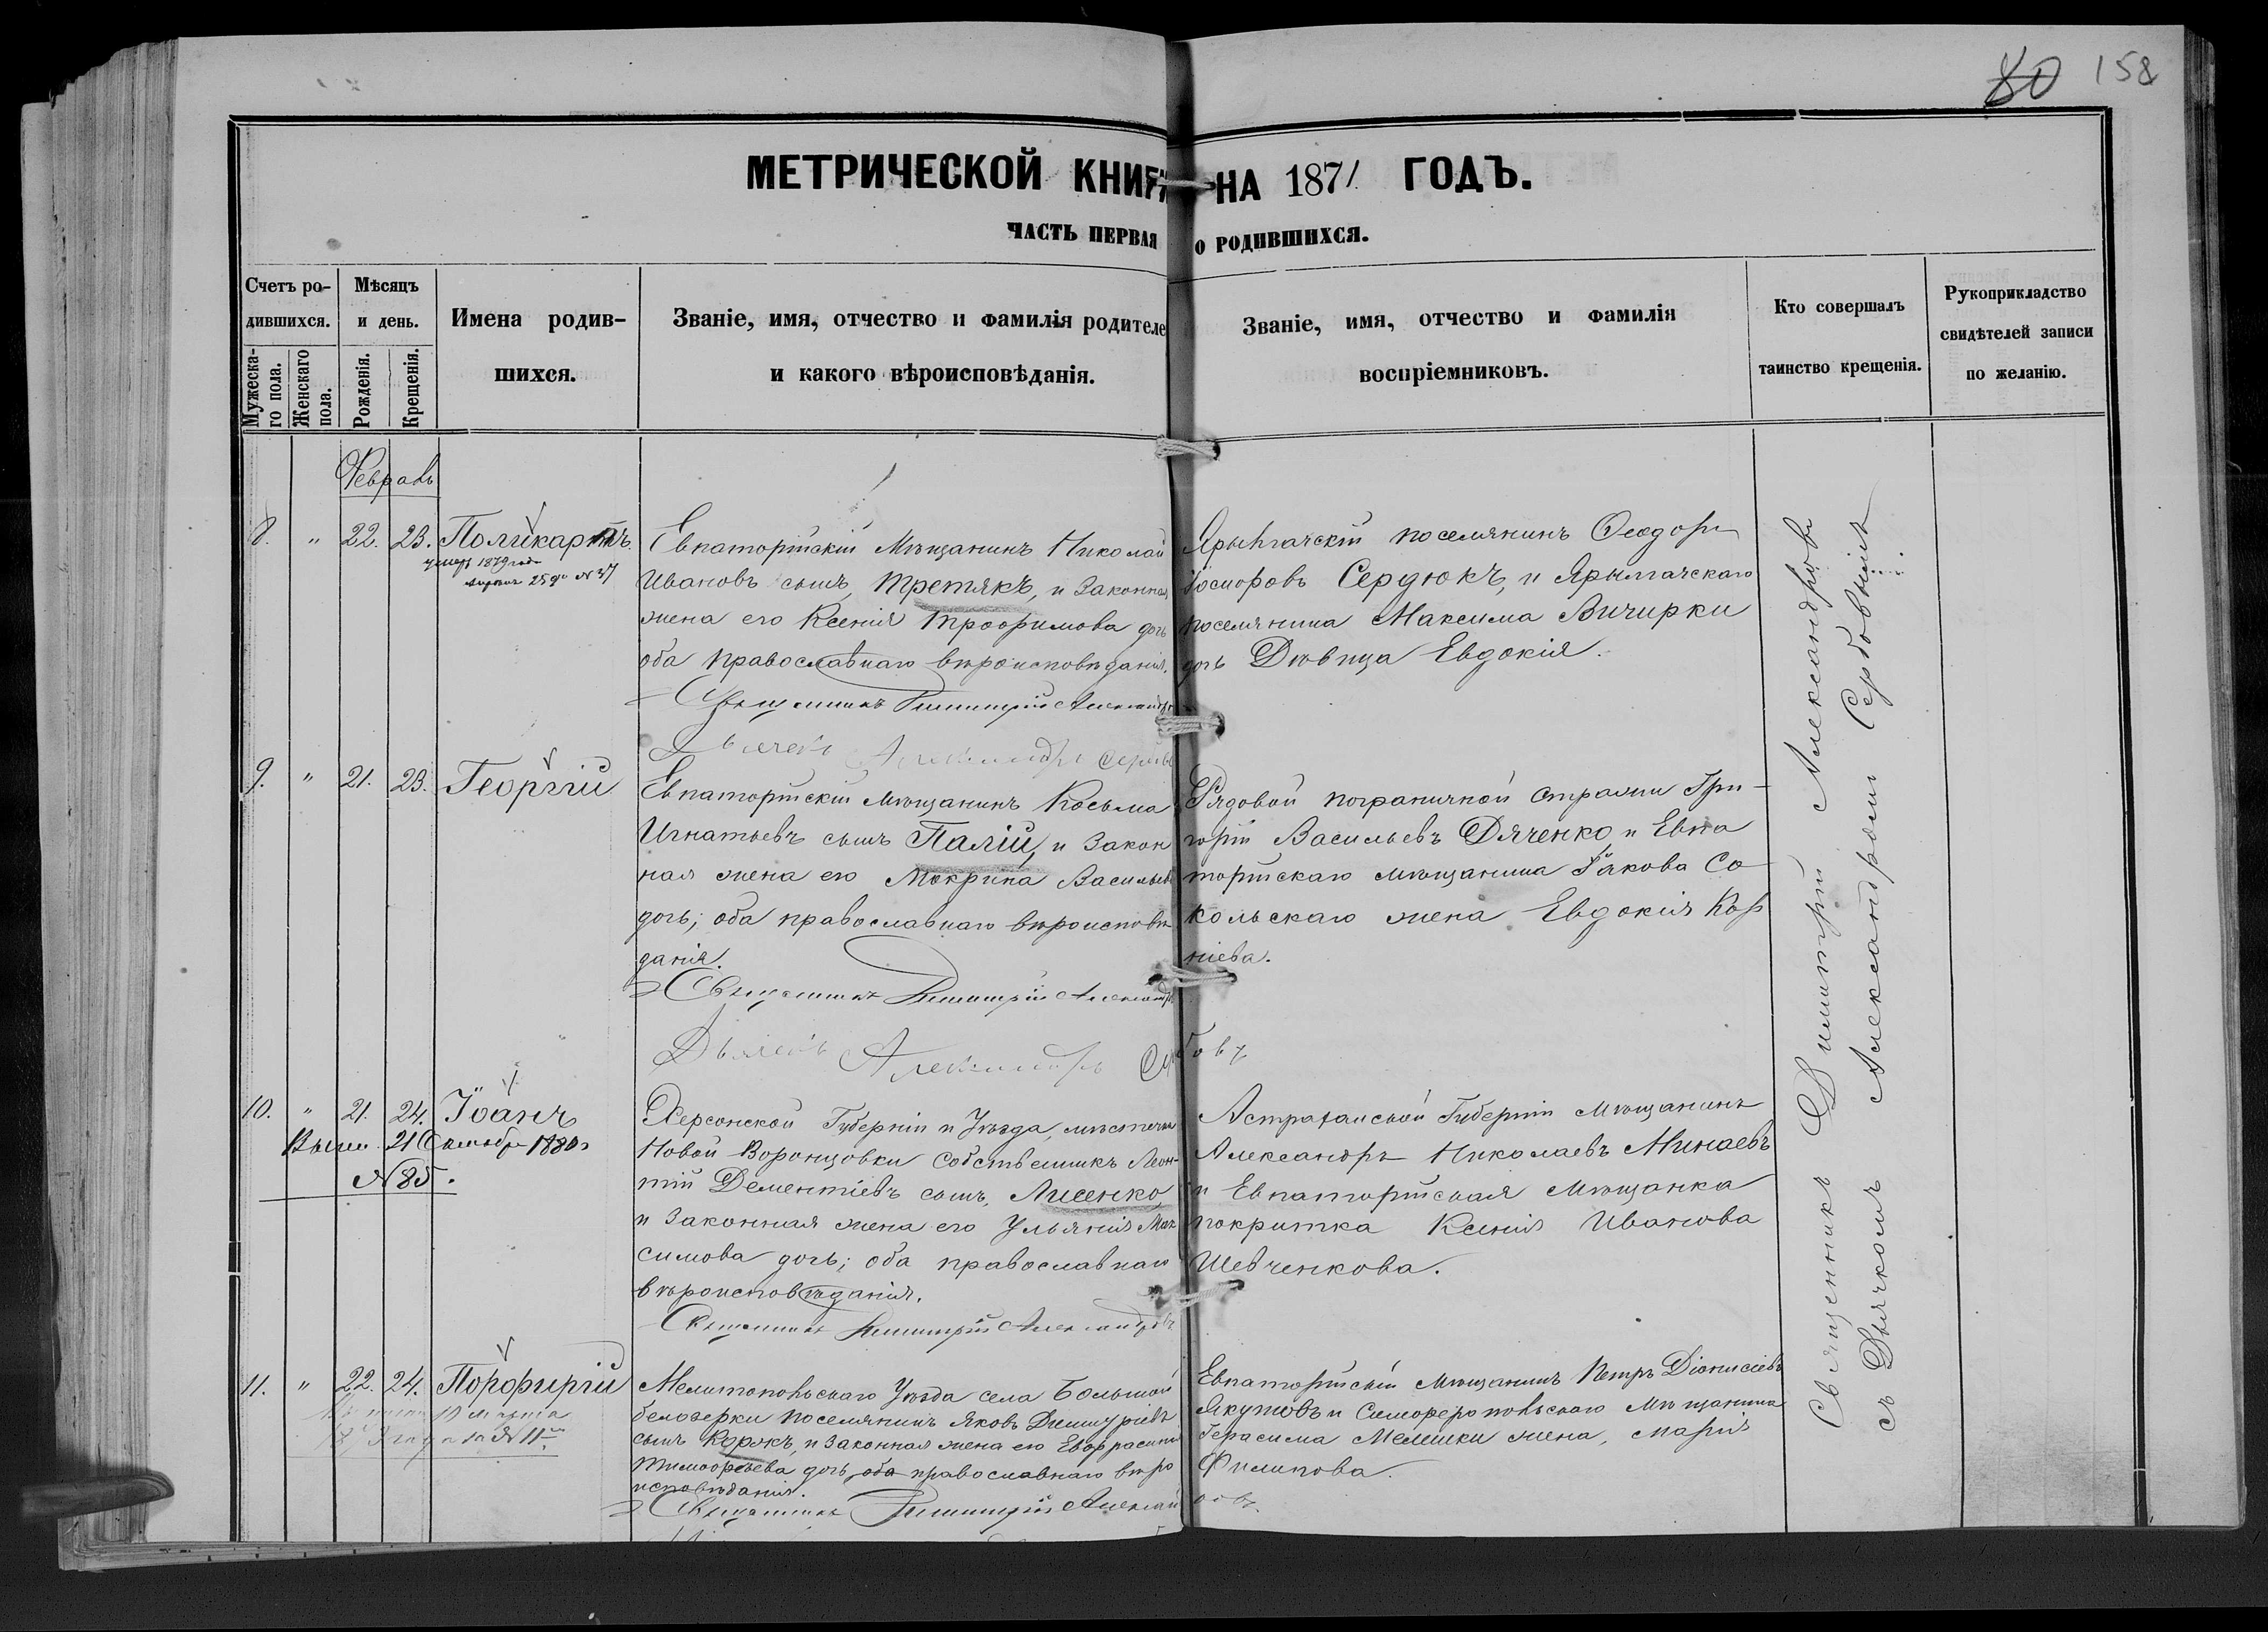 80 158
МЕТРИЧЕСКОЙ КНИГ НА 1871 ГОДЪ.
ЧАСТЬ ПЕРВАЯ О РОДИВШИХСЯ.
Счетъ ро-
дившихся.
Мужеска-
го пола.
Женскаго
пола.
Мѣсяцъ
и день.
Рожденія.
Крещенія.
Имена родив-
шихся.
Званіе, имя, отчество и фамилія родителе
и какого вѣроисповѣданія.
Званіе, имя, отчество и фамилія
воспріемниковъ.
Кто совершалъ
таинство крещенія.
Рукоприкладство
свидѣтелей записи
по желанію.
Февраль
8. " 22. 23. Поликарпъ
умеръ 1879 года
25 № 37
Евпаторійскій Мѣщанинъ Николай
Ивановъ сынъ, Третякъ, и законная
жена его Ксенія Трофимова дочь
оба православнаго вѣроисповѣданія.
Священникъ Димитрій Александр
Дьячекъ Александръ Сербов
Ярылгачскій поселянинъ Ѳеодоръ
Сердюкъ, и Ярылгачскаго
поселянина Максима Вичирки
дочь Дѣвица Евдокія.
9. " 21. 23. Георгій
Евпаторійскій Мѣщанинъ Косьма
Игнатьевъ сынъ Палій, и Закон
ная жена его Мокрина Васильев
дочь; оба православнаго вѣроисповѣ
данія.
Священникъ Димитрій Александр
Дьячекъ Александръ Сербовъ
Рядовой пограничной стражи Гри-
горій Васильевъ Дяченко, и Евпа
торійскаго мѣщанина Іакова Со
кольскаго жена Евдокія Кор
ніева.
10. " 21. 24. Іоанъ
21 Октября 1880
№ 85.
Херсонской Губерніи и Уѣзда, мѣстечка
Новой Воронцовки Собственникъ Леон-
тій Дементіевъ сынъ, Лисенко,
и Законная жена его Ульянія Мак
симова дочь; оба православнаго
вѣроисповѣданія.
Священникъ Димитрій Александровъ
Астраханской Губерніи мѣщанинъ
Александръ Николаевъ Минаевъ
и Евпаторійская Мѣщанка
покритка Ксенія Иванова
Шевченкова.
11. " 22. 24. Порфирій
10 марта
№ 11
Мелитопольскаго Уѣзда села Большой
белозерки поселянинъ Яковъ Димитріевъ
сынъ Коржъ, и Законная жена его Евфрасинія
Тимофѣева дочь, оба православнаго вѣро
исповѣданія.
Священникъ Димитрій Александ
ровъ
Евпаторійскій Мѣщанинъ Петръ Діонисіевъ
Якутовъ и Симферопольскаго Мѣщанина
Герасима Мелешки жена, Марія
Филипова.
Священникъ Димитрій Александровъ
съ Дьячкомъ Александромъ Сербовымъ